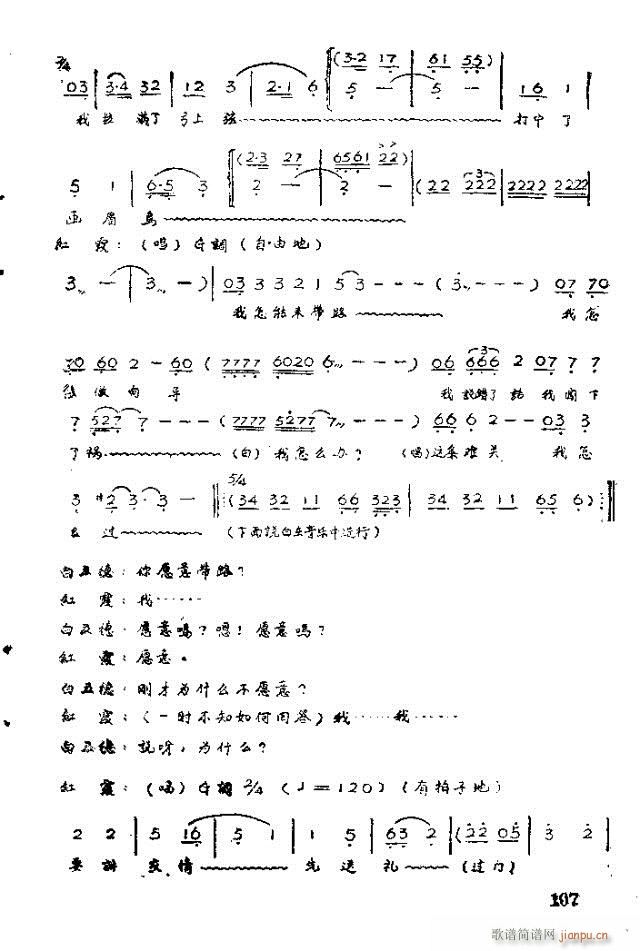 2/4
03 | 3·4 32 | 12 3 | 2·1 6 | (3·2 17 | 61 55) | 5 — | 5 — | 16 1 |
我拉满了弓上弦 打中了
5 1 | 6·5 3 | (2·3 27 | 6561 22) | 2 — | 2 — | (22 222 | 2222 2222
画眉鸟
红霞：（唱）G调（自由地）
3 — | 3 —) | 03 3 3 2 1 5 3 - - - (3 - - - ) 07 70
我怎能来带路 我怎
70 60 2 — 60 (7777 6020 6 - - - ) 06 666 2 07 7 7
能做向导 我说错了话我闯下
7 527 7 - - - (7777 5277 - - - ) 66 6 2 - - 03 3
了祸 （白）我怎么办？（唱）这条难关 我怎
3 #2 3· 3 — 5/4 (34 32 11 66 323 | 34 32 11 65 6)
去过 （下面说白在音乐中进行）
白五德：你愿意带路？
红霞：我……
白五德：愿意吗？嗯！愿意吗？
红霞：愿意。
白五德：刚才为什么不愿意？
红霞：（一时不知如何回答）我……我……
白五德：说呀，为什么？
红霞：（唱）G调 2/4（♩＝120）（有拍子地）
2 2 | 5 16 | 5 1 | 1 5 | 63 2 | (22 05 | 3 2 |
要讲交情 先送礼 （过门）
107
歌谱简谱网
jianpu.cn